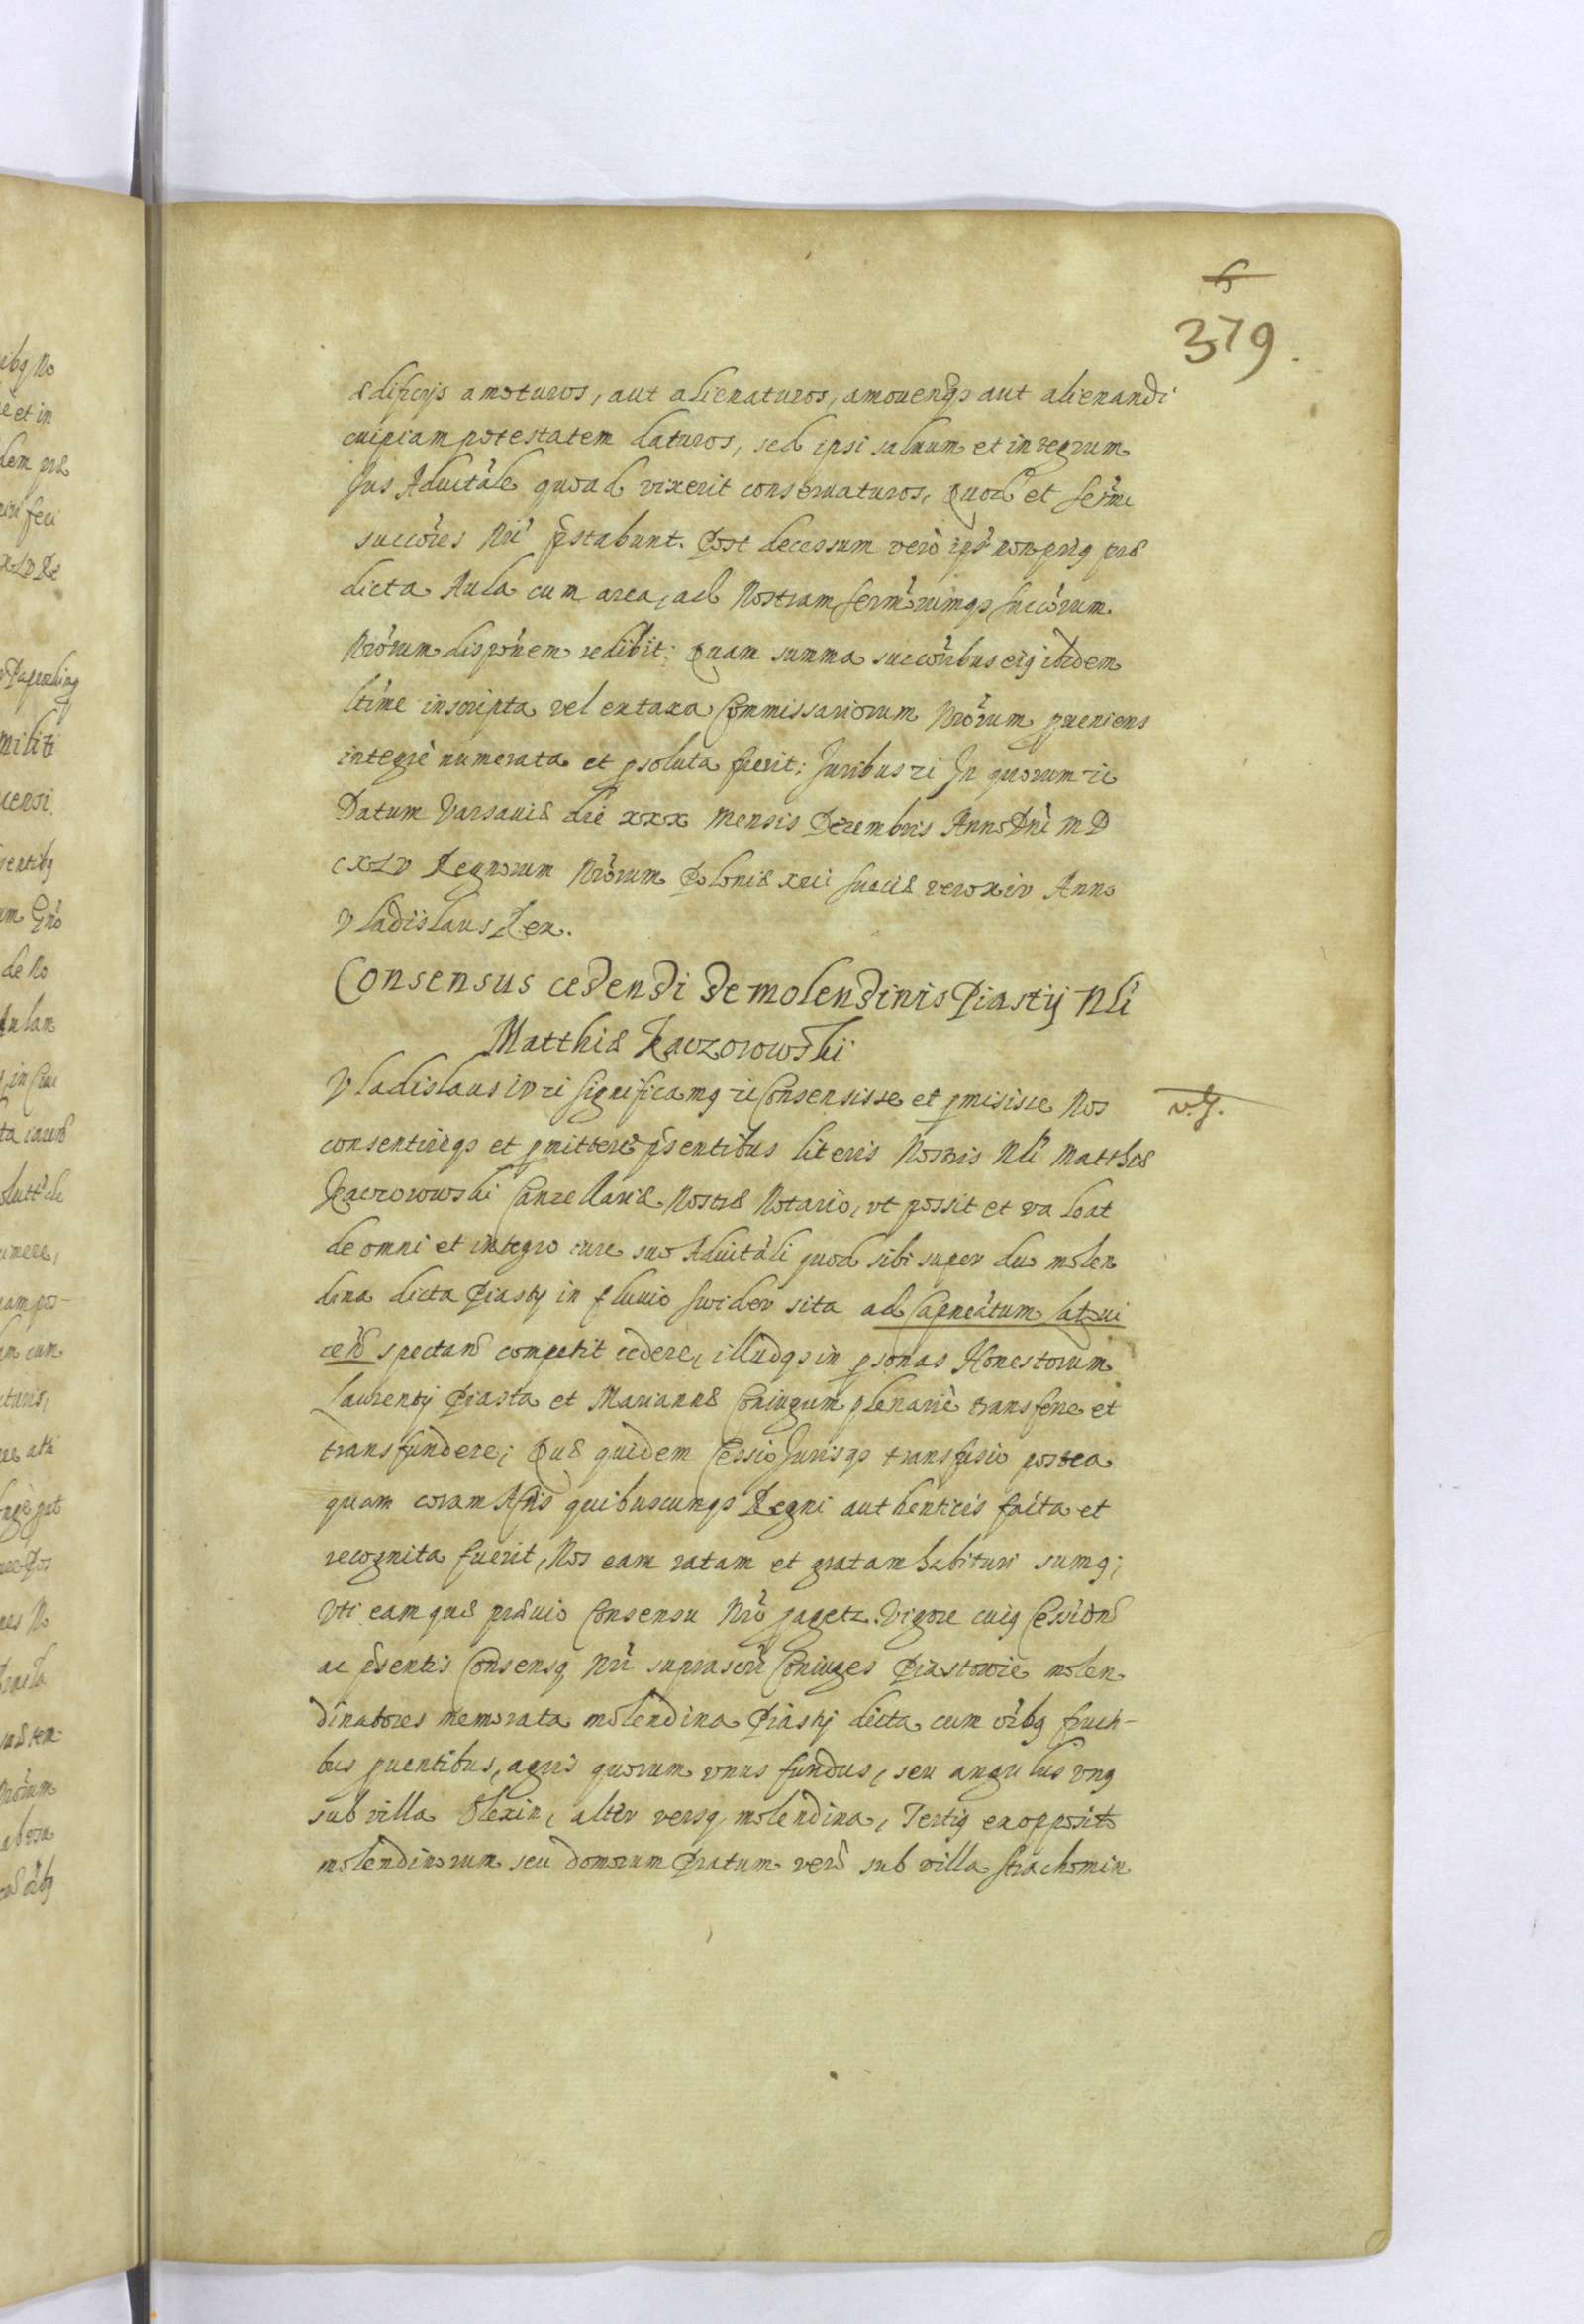 379.
ædificijs amoturos, aut alienaturos, amouendiqs aut alienandi
cuipiam potestatem daturos, sed ipsi saluum et integrum
Jus Aduitále quoad vixerit conseruaturos, Quod et Sermi
succóres Nri pstabunt. Post decessum verò ipsi non prig præ
dicta Aula cum area, ad Nostram Sermorumqs Succórum
Nrórum dispónem redibit; Quam summa succóribus eig ibidem
ltíme inscripta vel ex taxa Commissariorum Nrórum pueniens
integrè numerata et psoluta fuerit; Juribus ri In quorum ri
Datum Varsauiæ die XXX Mensis Decembris Anno Dni MD
CXLV Regnorum Nrórum Poloniæ XIII Sueciæ vero XIV Anno
Vladislaus Rex.
Consensus cedendi de molendinis Piastij Nli
Matthiæ Kaczorowski
Vladislaus IV ri Significamg ri Consensisse et pmisisse Nos
consentireqs et pmittere psentibus literis Nostris Nli Matthiæ
Kaczorowski Cancellariæ Nostræ Notario, vt possit et valeat
de omni et integro iure suo Aduitáli quod sibi super duo molen
dina dicta Piasty in fluuio Swider sita ad Capneátum Latoui
cen spectan competit cedere, illudqs in psonas Honestorum
Laurentij Piasta et Mariannæ Coniugum plenariè transferre et
transfundere; Quæ quidem Cessio Jurisqs transfusio postea
quam coram Actis quibuscunqs Regni authenticis facta et
recognita fuerit, Nos eam ratam et gratam habituri sumg;
Vti eamque præuio Consensu Nro pagetz. Vigore cuig Cession
ac psentis Consensg Nri suprascri Coniuges Piastowie molen
dinatores memorata molendina Piastij dicta cum oibg fructi-
bus puentibus, agris quorum vnus fundus, seu angulus vng
sub villa Olexin, alter versg molendina, Tertig ex opposito
molendinorum seu domorum Pratum verò sub villa Strachomin